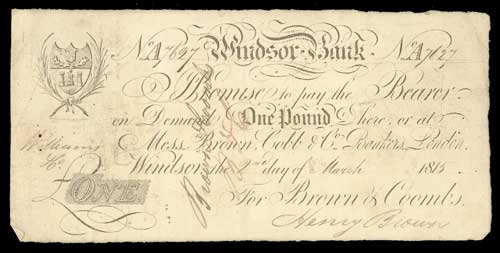 No. A7627 Windsor-Bank No. A7627
I Promise to pay the Bearer
on Demand One Pound Here, or at
Messrs. Brown, Cobb & Co. Bankers, London.
Windsor the 2nd day of March 1815
For Brown & Coombs.
£ONE
Henry Brown